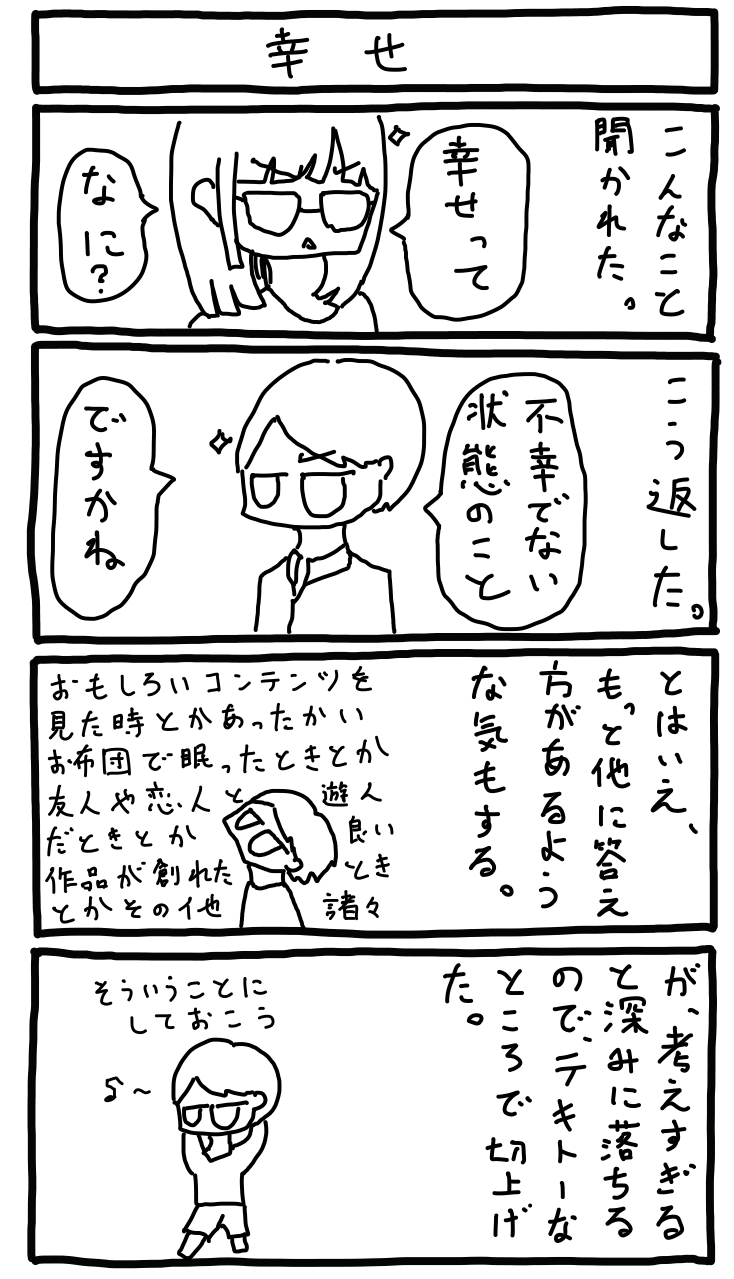 幸せ
こんなこと
聞かれた。
幸せって
なに?
こう返した。
不幸でない
状態のこと
ですかね
とはいえ、
もっと他に答え
方があるよう
な気もする。
おもしろいコンテンツを
見た時とかあったかい
お布団で眠ったときとか
友人や恋人と遊ん
だときとか良い
作品が創れたとき
とかその他諸々
が、考えすぎる
と深みに落ちる
ので、テキトーな
ところで切上げ
た。
そういうことに
しておこう
♪〜